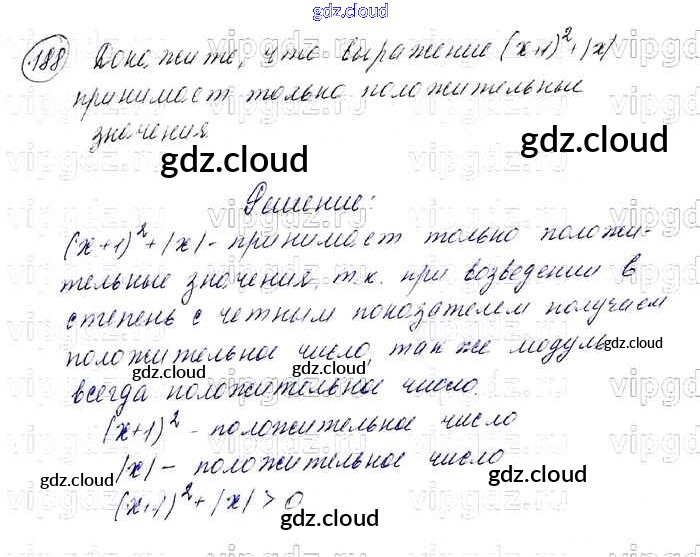 gdz.cloud
188 Докажите, что выражение (x+1)²+|x|
принимает только положительные
значения
gdz.cloud
gdz.cloud
Решение:
(x+1)²+|x| - принимает только положи-
тельные значения, т.к. при возведении в
степень с четным показателем получаем
положительное число, так же модуль
gdz.cloud
всегда положительное число.
gdz.cloud
(x+1)² - положительное число
|x| - положительное число
gdz.cloud
gdz.cloud
(x+1)²+|x|>0
gdz.cloud